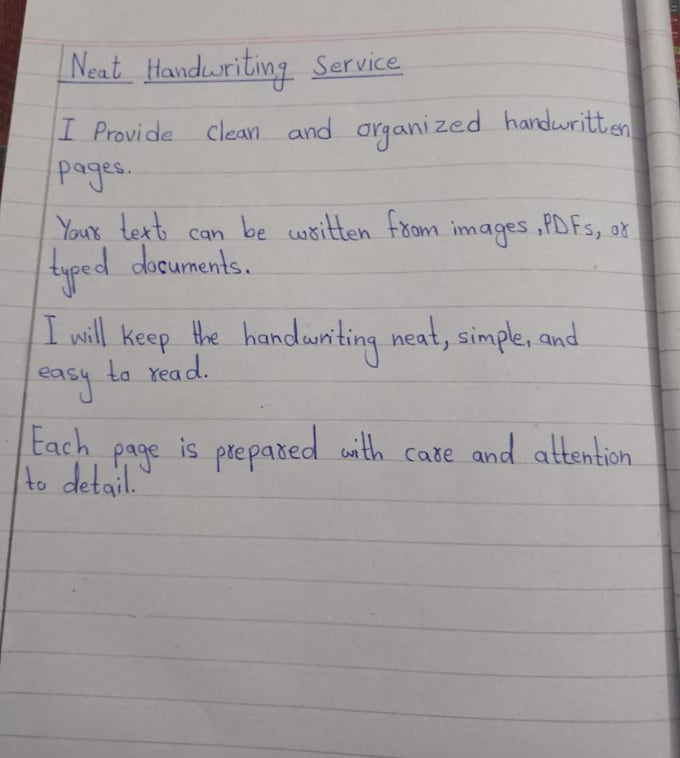 Neat Handwriting Service
I Provide clean and organized handwritten
pages.
Your text can be written from images, PDFs, or
typed documents.
I will keep the handwriting neat, simple, and
easy to read.
Each page is prepared with care and attention
to detail.